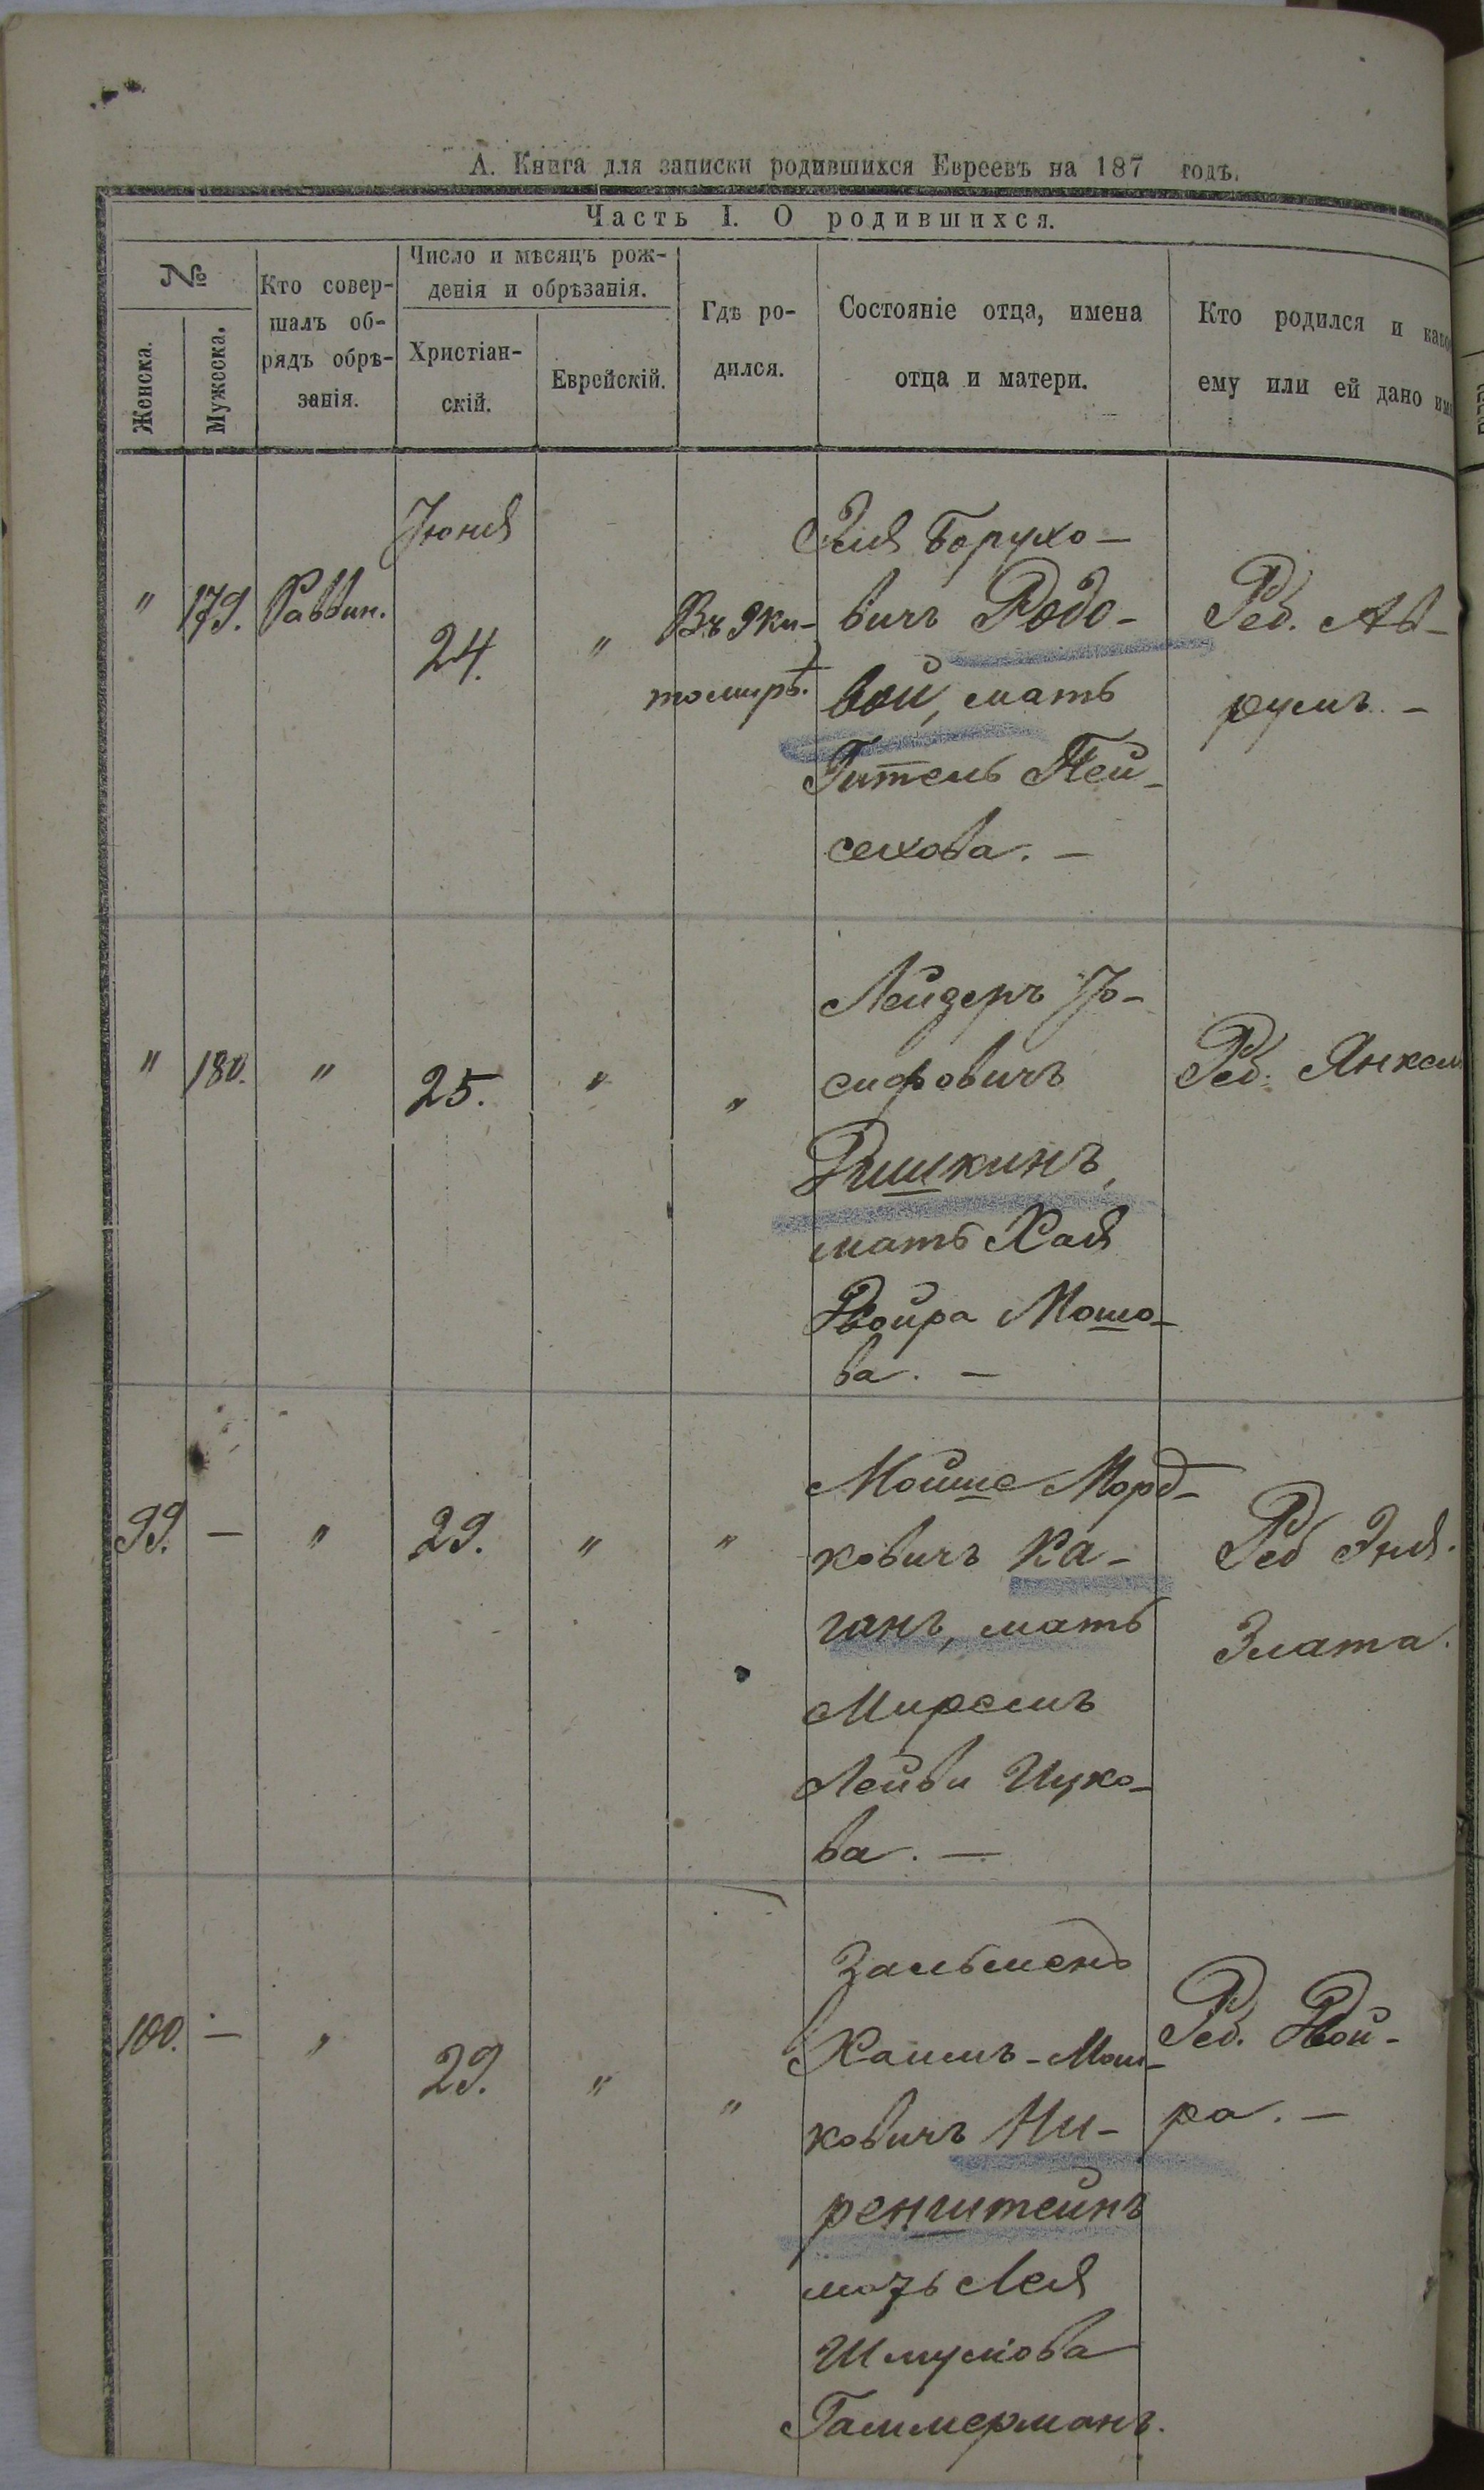 А. Книга для записки родившихся Евреевъ на 187 годъ.
Часть I. О родившихся.
№
Женска.
Мужеска.
Кто совер-
шалъ об-
рядъ обрѣ-
занія.
Число и мѣсяцъ рож-
денія и обрѣзанія.
Христіан-
скій.
Еврейскій.
Гдѣ ро-
дился.
Состояніе отца, имена
отца и матери.
Кто родился и
ему или ей дано
" 179. Раввин.
Іюня
24.
"
Въ Жи-
томирѣ.
Эля Борухо-
вичъ Родо-
вой, мать
Гитель Пей-
сахова. —
Реб. Ав-
румъ. —
" 180. " 25. " "
Лейзеръ Іо-
сифовичъ
мать Хая
Двойра Мошо-
ва. —
Реб. Янкель
99. — " 29. " "
Мойше Морд-
ковичъ Ка-
ганъ, мать
Мирель
Лейби Ицко-
ва. —
Реб Эня.
Злата.
100. — " 29. " "
Зальмень
Хаимъ-Мош-
ковичъ Ни-
ренштейнъ
мать Лея
Шмулова
Гаммерманъ.
Реб. Двой-
ра. —